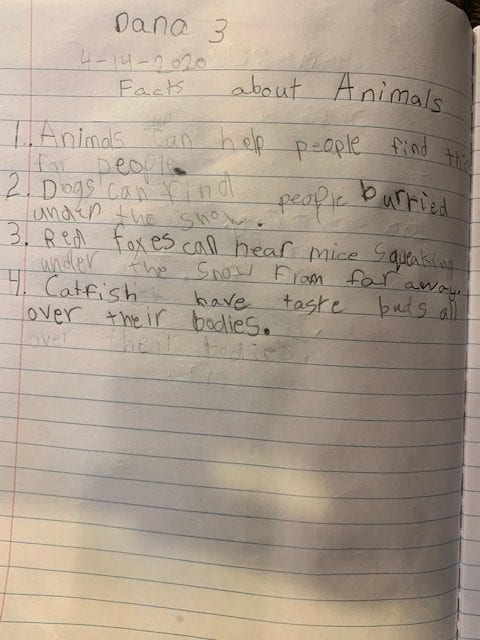 Dana 3
4-14-2020
Facts about Animals
1. Animals can help people find
for people.
2. Dogs can find people burried
under the snow.
3. Red foxes can hear mice squeaking
under the snow from far away.
4. Catfish have taste buds all
over their bodies.
over their bodies.